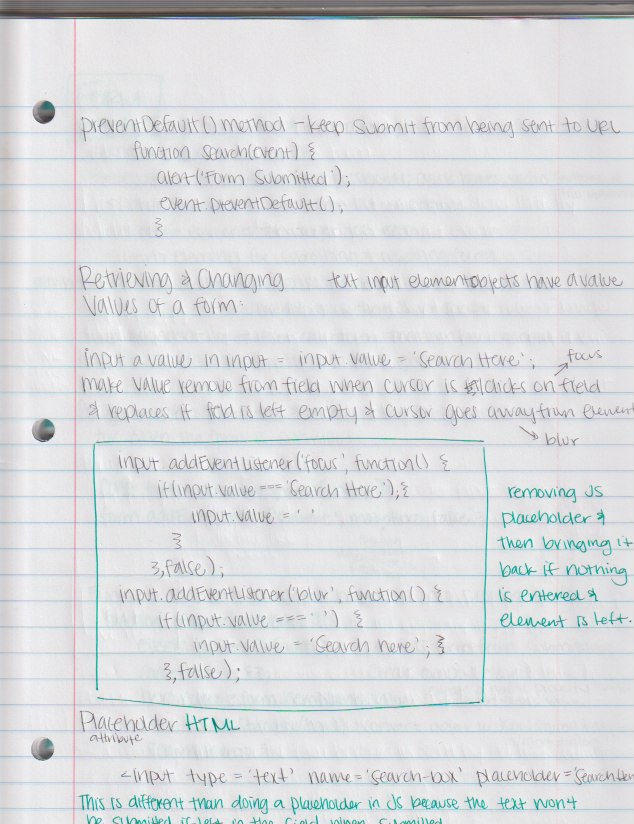 preventDefault() method - keep submit from being sent to URL
function search(event) {
alert('Form Submitted');
event.preventDefault();
}
Retrieving & Changing text input element objects have a value
Values of a form:
input a value in input = input.value = 'Search Here'; focus
make value remove from field when cursor is clicks on field
& replaces if field is left empty & cursor goes away from element
blur
input.addEventListener('focus', function() {
if(input.value === 'Search Here'),{
input.value = ' '
}
},false);
input.addEventListener('blur', function() {
if(input.value === ' ') {
input.value = 'Search here'; }
},false);
removing JS
placeholder &
then bringing it
back if nothing
is entered &
element is left.
Placeholder HTML
attribute
<input type = 'text' name = 'search-box' placeholder = 'Search Her
This is different than doing a placeholder in JS because the text won't
be submitted if left in the field when submitted